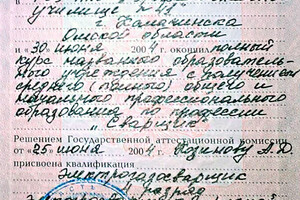 училище №
г. Калачинска
Омской области
и «30» июня 2004 г. окончил полный
курс названного образователь-
ного учреждения с получением
среднего (полного) общего и
начального профессионального
образования по профессии
"Сварщик"
Решением Государственной аттестационной комиссии
от «25» июня 2004 г.
присвоена квалификация
Электрогазосварщик
разряд